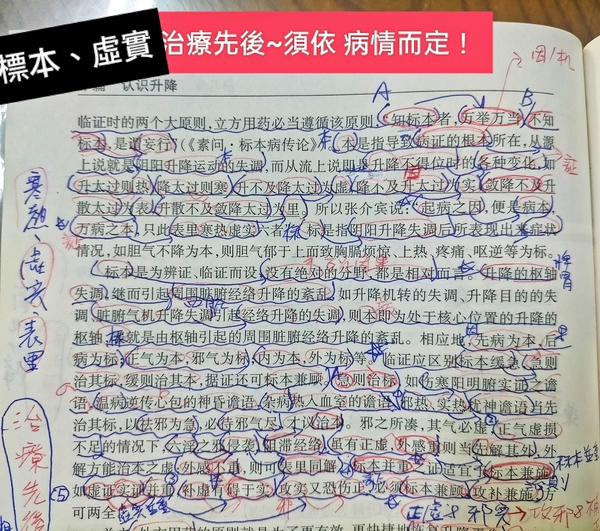 標本、虛實
治療先後~須依 病情而定！
认识升降
因/机
A
B
临证时的两个大原则,立方用药必当遵循该原则,“知标本者,万举万当,不知
标本,是谓妄行”(《素问·标本病传论》)。本是指导致病证的根本所在,从源
上说就是阴阳升降运动的失调,而从流上说即是升降不得位时的各种变化,如
升太过则热,降太过则寒,升不及降太过为虚,降不及升太过为实,敛降不及升
散太过为表,升散不及敛降太过为里。所以张介宾说:“起病之因,便是病本,
万病之本,只此表里寒热虚实六者”。标是指阴阳升降失调后所表现出来症状
情况,如胆气不降为本,则胆气郁于上而致胸膈烦惊、上热、疼痛、呕逆等为标。
标本是为辨证、临证而设,没有绝对的分野,都是相对而言。升降的枢轴
失调,继而引起周围脏腑经络升降的紊乱。如升降机转的失调、升降目的的失
调,脏腑气机升降失调引起经络升降的失调,则本即为处于核心位置的升降的
枢轴,标就是由枢轴引起的周围脏腑经络升降的紊乱。相应地,先病为本,后
病为标;正气为本,邪气为标;内为本,外为标等。临证应区别标本缓急,急则
治其标,缓则治其本,据证还可标本兼顾。急则治标,如伤寒阳明腑实证之谵
语,温病逆传心包的神昏谵语,杂病热入血室的谵语,邪热、实热扰神谵语当先
治其标,以祛邪为急,必待邪气尽,才议治本。邪之所凑,其气必虚,正气虚损
不足的情况下,六淫之邪侵袭,阻滞经络,虽有正虚,外感重则当先解其外,外
解方能治本之虚;外感不重,则可表里同解,标本并重之证适宜于标本兼施,
如虚证实证并重,补虚有碍于实,攻实又恐伤正,必须标本兼顾,攻补兼施,方
可两全。
寒熱、虛實、表里
治療先後
脾胃
⑤